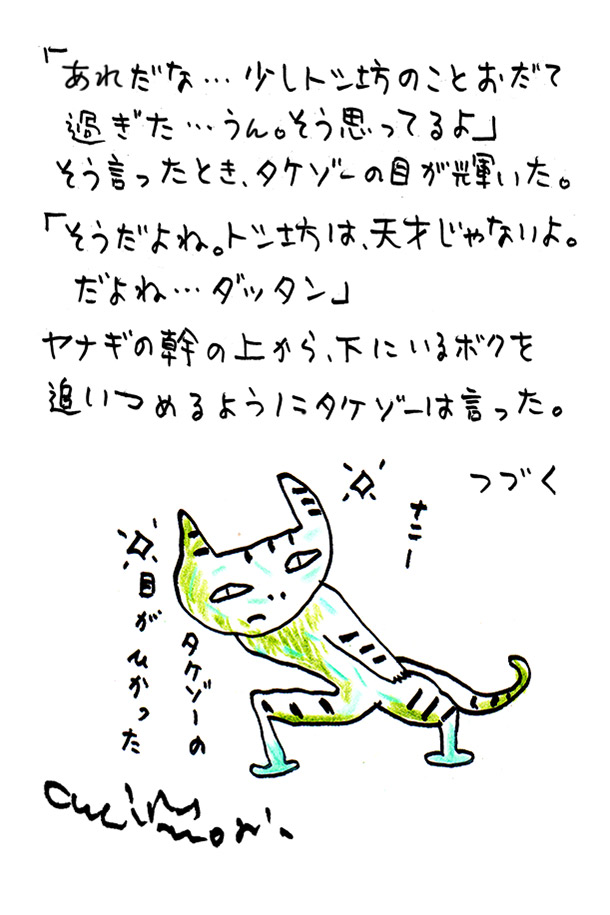 「あれだな…少しトン坊のことおだて
過ぎた…うん。そう思ってるよ」
そう言ったとき、タケゾーの目が輝いた。
「そうだよね。トン坊は、天才じゃないよ。
だよね…ダッタン」
ヤナギの幹の上から、下にいるボクを
追いつめるようにタケゾーは言った。
つづく
ナニー
タケゾーの
目がひかった